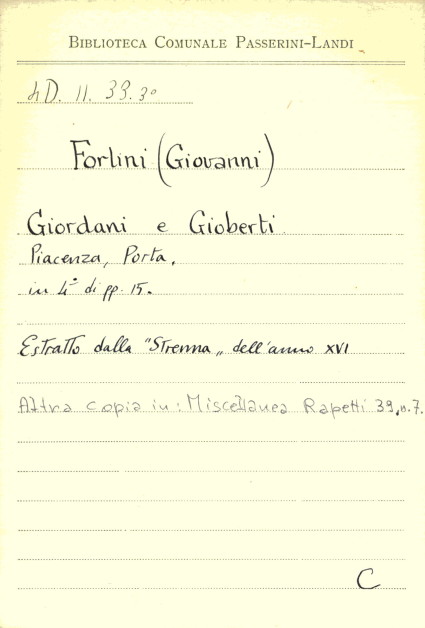 BIBLIOTECA COMUNALE PASSERINI-LANDI
4D. 11. 39. 3º
Forlini (Giovanni)
Giordani e Gioberti.
Piacenza, Porta.
in 4º di pp. 15.
Estratto dalla "Strenna„ dell'anno XVI
Altra copia in: Miscellanea Rapetti 39, n. 7.
C